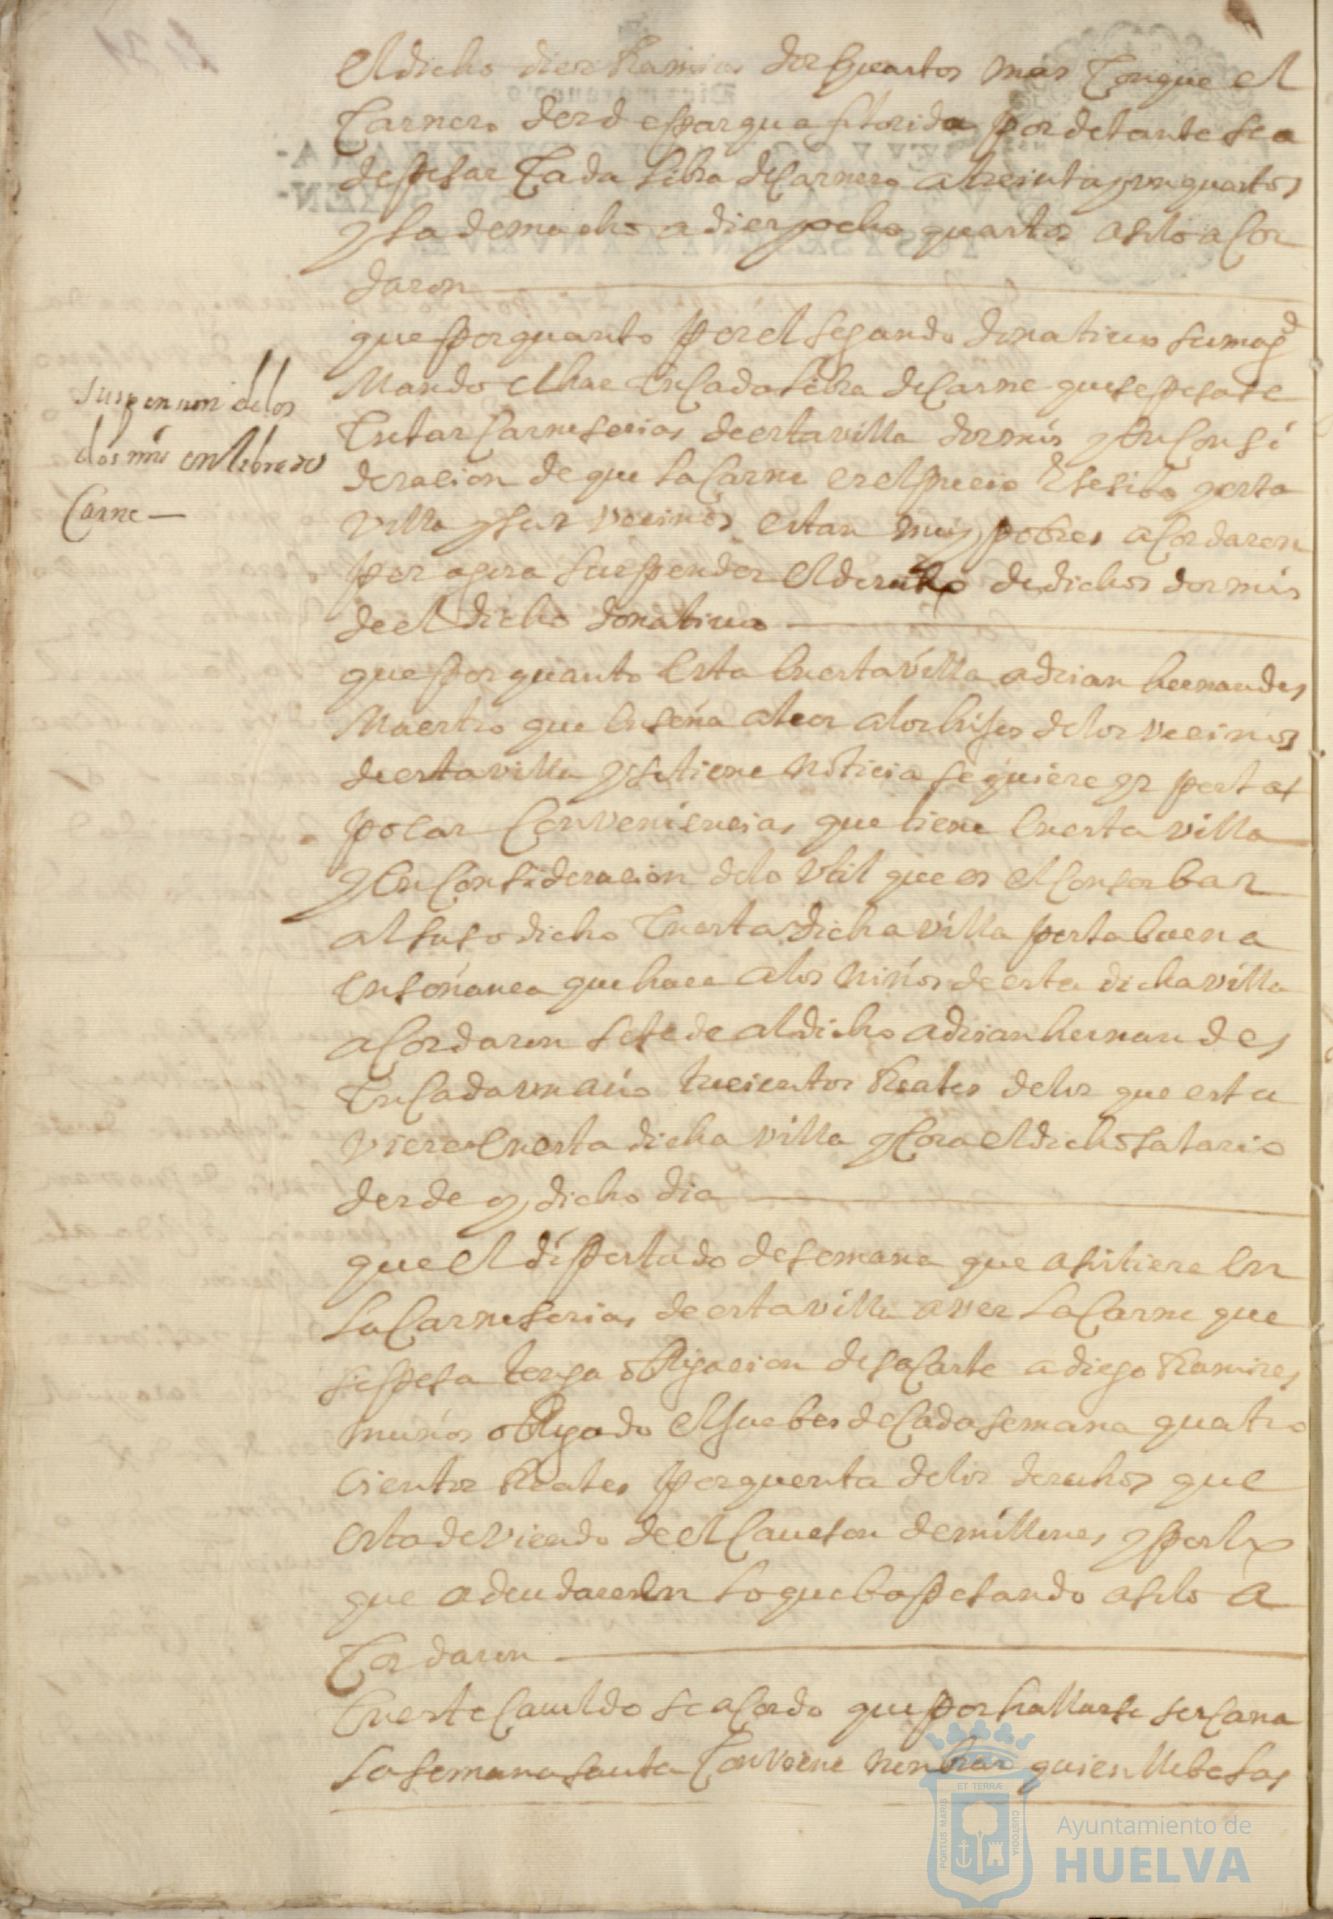 El dicho diego Ramires dos quartos mas Conque el
Carnero desde espasqua florida por delante sea
de pesar Cada libra de Carnero a treinta y un quartos
y la de macho a diez y ocho quartos asi lo acor
daron
que por quanto por el segundo donativo su mag.d
Mando echar En Cada libra de Carne que se pesase
En las Carneserias de esta villa dos mrs y En Consi
deracion de que la Carne es el precio esesibo y esta
villa y sus vecinos estan muy pobres acordaron
por agora suspender el derecho de dichos dos mrs
de el dicho donativo
suspension de los
dos mrs en libra de
Carne
que por quanto Esta En esta villa adrian hernandes
Maestro que Enseña a leer a los hijos de los vecinos
de esta villa y se tiene noticia se quiere yr por las
pocas Conveniencias que tiene En esta villa
y En Consideracion de lo Util que es el Conserbar
al susodicho En esta dicha villa por la buena
Enseñanca que hace a los niños de esta dicha villa
acordaron se le de al dicho adrian hernandes
En Cada un año trecientos Reales de los que esta
viere En esta dicha villa y Cora el dicho salario
desde oy dicho dia
que el diputado de semana que asistiere En
la Carneseria de esta villa a ver la Carne que
se pesa tenga obligacion de sacarle a diego Ramires
muños obligado el juebes de Cada semana quatro
cientos Reales por quenta de los derechos que
esta deviendo de el Caveson de millones y por lo
que adeudare En lo que ba pesando asi lo a
Cordaron
En este Cavildo se acordo que por hallarse sercana
la semana santa Conviene nonbrar quien llebe las
Ayuntamiento de
HUELVA
PORTUS MARIS
ET TERRÆ
CUSTODIA